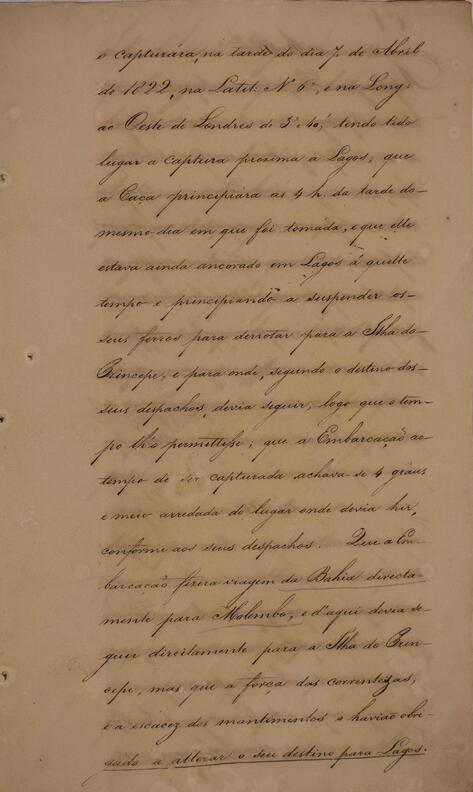 o capturára, na tarde do dia 7 de Abril
de 1822, na Latit: N 6º, e na Long:
ao Oeste de Londres de 3º 40', tendo tido
lugar a captura proxima a Lagos; que
a Caça principiára as 4 h. da tarde do
mesmo dia em que foi tomada, e que elle
estava ainda ancorado em Lagos á quelle
tempo e principiando a suspender os
seus ferros para derrotar para a Ilha do
Principe; e para onde, segundo o destino dos
seus despachos, devia seguir, logo que o tem-
po lh'o permettisse; que a Embarcação ao
tempo de ser capturada achava-se 4 gráus
e meio arredada do lugar onde devia hir,
conforme aos seus despachos. Que a Em-
barcação fizera viagem da Bahia directa-
mente para Molembo, e d'aqui devia se-
guir direitamente para a Ilha do Prin-
cepe, mas que a força das correntezas,
e a escacez dos mantimentos o havião obri-
gado a alterar o seu destino para Lagos.